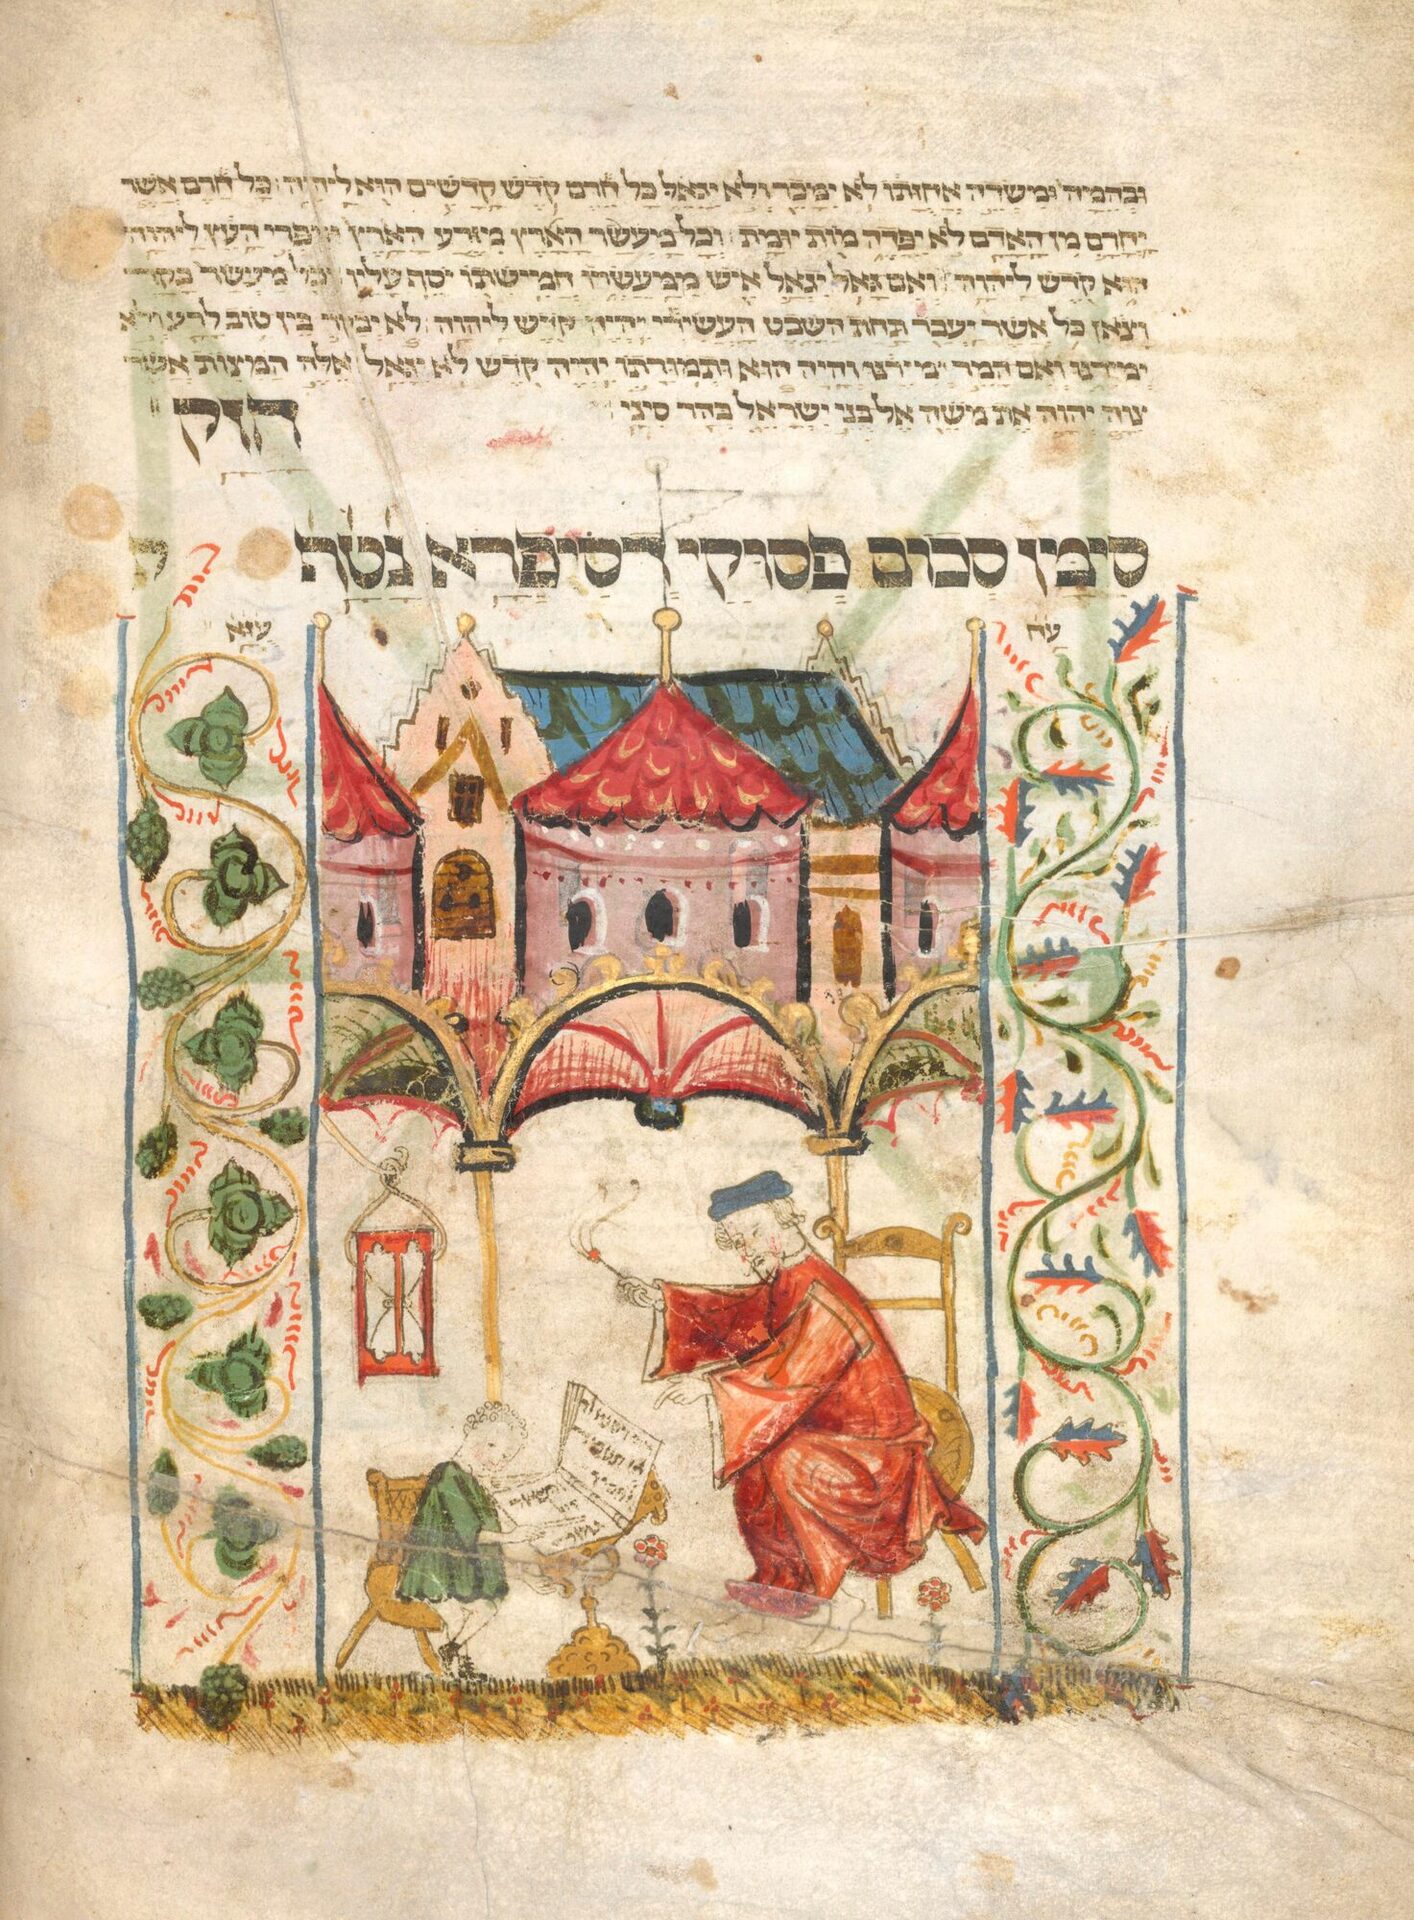 ובהמה ומשדה אחזתו לא ימכר ולא יגאל כל חרם קדש קדשים הוא ליהוה כל חרם אשר
יחרם מן האדם לא יפדה מות יומת וכל מעשר הארץ מזרע הארץ מפרי העץ ליהוה
הוא קדש ליהוה ואם גאל יגאל איש ממעשרו חמישתו יסף עליו וכל מעשר בקר
וצאן כל אשר יעבר תחת השבט העשירי יהיה קדש ליהוה לא יבקר בין טוב לרע ולא
ימירנו ואם המר ימירנו והיה הוא ותמורתו יהיה קדש לא יגאל אלה המצות אשר
צוה יהוה את משה אל בני ישראל בהר סיני
חזק
סימן סכום פסוקי דסיפרא